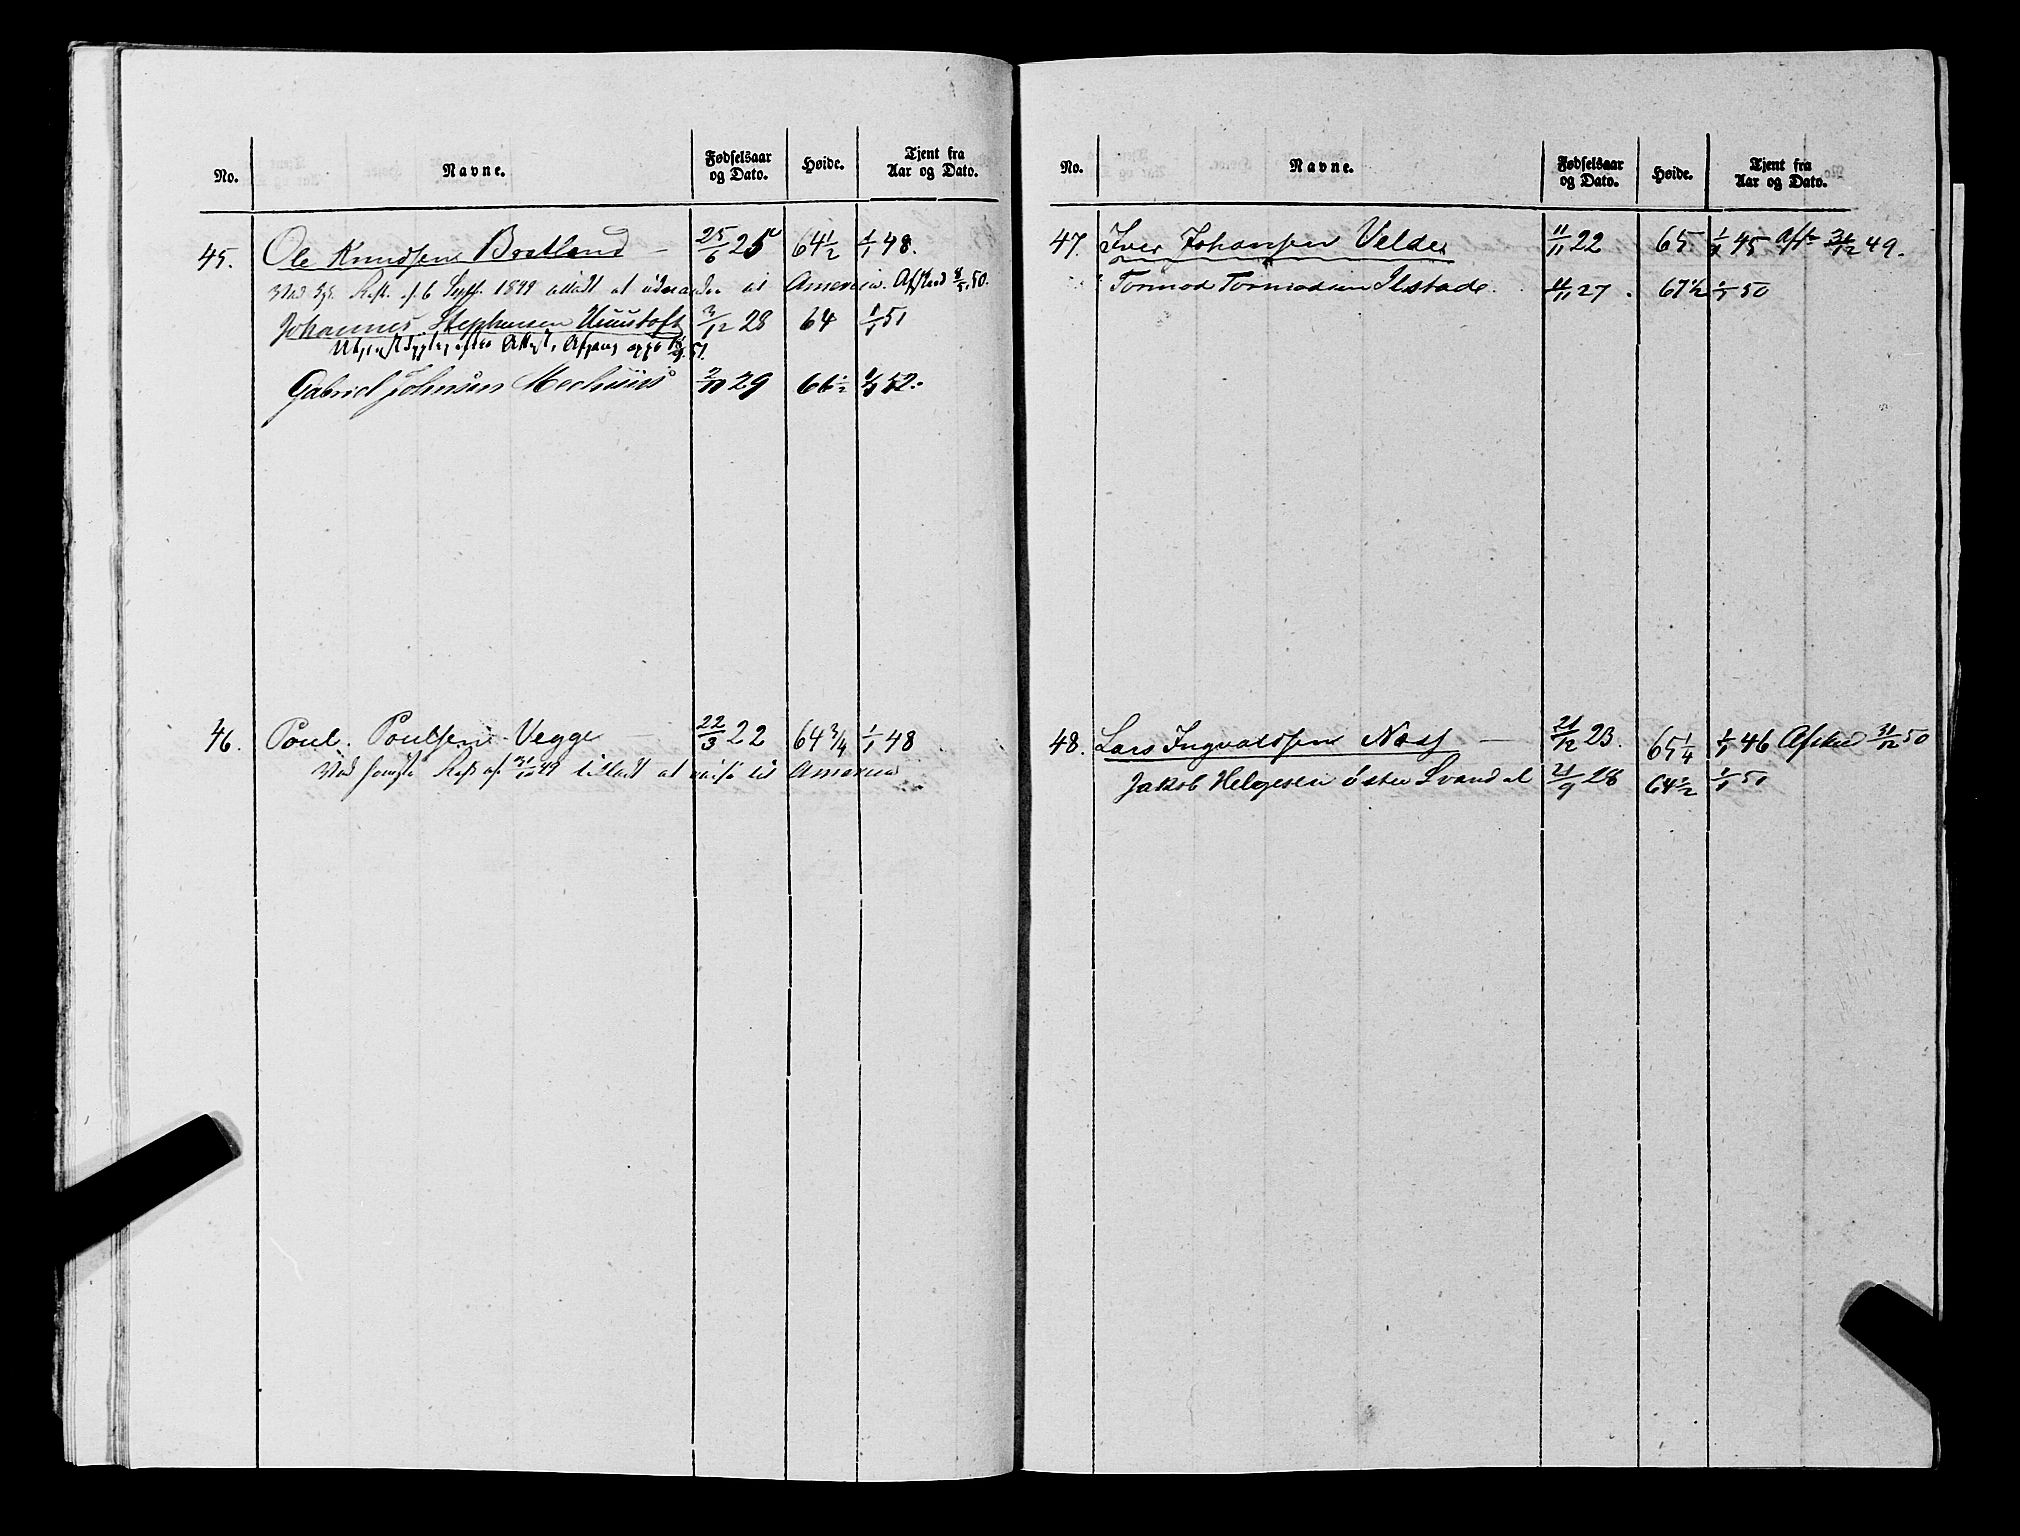 No. Navne. Fødselsaar og Dato. Høide. Tjent fra Aar og Dato.
45. Ole Knudsen Bratland – 25/6 25 64 1/2 1/1 48.
6 Sept. 1849 at Amerika. Afskeed 50.
Johannes Stephensen 3/12 28 64 1/1 51
51.
Gabriel Johnsen 2/10 29 66 1/2 1/1 52.
46. Poul Poulsen Vegge – 22/3 22 64 3/4 1/1 48
Ved 31/10 49 tilladt at reise til Amerika
No. Navne. Fødselsaar og Dato. Høide. Tjent fra Aar og Dato.
47. Iver Johansen Velde 11/11 22 65 1/1 45 Afsk 31/12 49.
Tormod Tormodsen Ilstade. 11/11 27. 67 1/2 1/1 50
48. Lars Ingvaldsen Næss – 21/12 23. 65 1/4 1/1 46 Afsked 31/12 50
Jakob Helgesen Østre Svandal 21/9 28 64 1/2 1/1 51